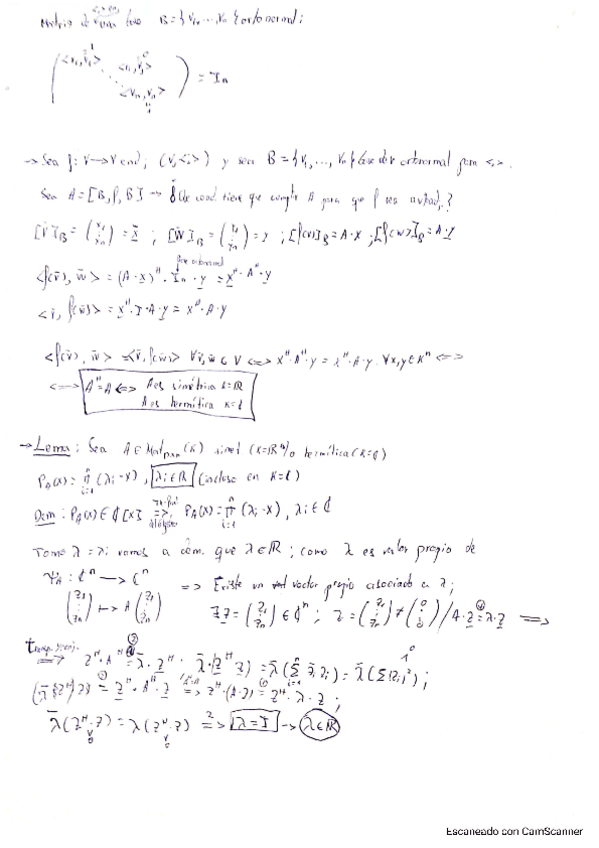 Matriz de <,> en base B={v₁,...,vₙ} ortonormal:
(<v₁,v₁> <v₁,vₙ> ... <vₙ,vₙ>) = Iₙ
→ Sea f: V→V end; (V,<,>) y sea B={v₁,...,vₙ} base de V ortonormal para <,>.
Sea A=[B,f,B] → ¿De cond. tiene que cumplir A para que f sea autoadj.?
[v̄]_B = (x₁ ⋮ xₙ) = x̄ ; [w̄]_B = (y₁ ⋮ yₙ) = y ; [f(v)]_B = A·x ; [f(w)]_B = A·y
base ortonormal
<f(v̄), w̄> = (A·x)ᴴ·Iₙ·y = xᴴ·Aᴴ·y
<v̄, f(w̄)> = xᴴ·I·A·y = xᴴ·A·y
<f(v̄), w̄> = <v̄, f(w̄)> ∀v̄,w̄∈V <=> xᴴ·Aᴴ·y = xᴴ·A·y. ∀x,y∈Kⁿ <=>
<=> Aᴴ=A <=> A es simétrica K=ℝ
A es hermítica K=ℂ
→ Lema: Sea A∈Matₙₓₙ(K) simet (K=ℝ) o hermítica (K=ℂ)
P_A(x) = ∏ᵢ₌₁ⁿ (λᵢ-x), λᵢ∈ℝ (incluso en K=ℂ)
Dem: P_A(x)∈ℂ[x] => P_A(x) = ∏ᵢ₌₁ⁿ (λᵢ-x), λᵢ∈ℂ
Tomo λ=λᵢ vamos a dem. que λ∈ℝ; como λ es valor propio de
Ψ_A: ℂⁿ → ℂⁿ => Existe un vector propio asociado a λ;
(z₁ ⋮ zₙ) ↦ A(z₁ ⋮ zₙ) ∃z=(z₁ ⋮ zₙ)∈ℂⁿ; z=(z₁ ⋮ zₙ)≠(0 ⋮ 0) / A·z=λ·z =>
=> zᴴ·Aᴴ = λ̄·zᴴ · λ̄·(zᴴ·z) = λ̄(∑ᵢ₌₁ⁿ z̄ᵢzᵢ) = λ̄(∑|zᵢ|²);
(λ̄·zᴴ)z = zᴴ·Aᴴ·z => zᴴ·(A·z) = zᴴ·λ·z;
λ̄(zᴴ·z) = λ(zᴴ·z) => λ=λ̄ → λ∈ℝ
Escaneado con CamScanner